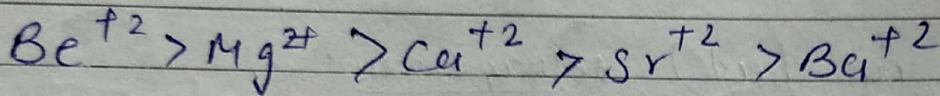 Be⁺² > Mg²⁺ > Ca⁺² > Sr⁺² > Ba⁺²